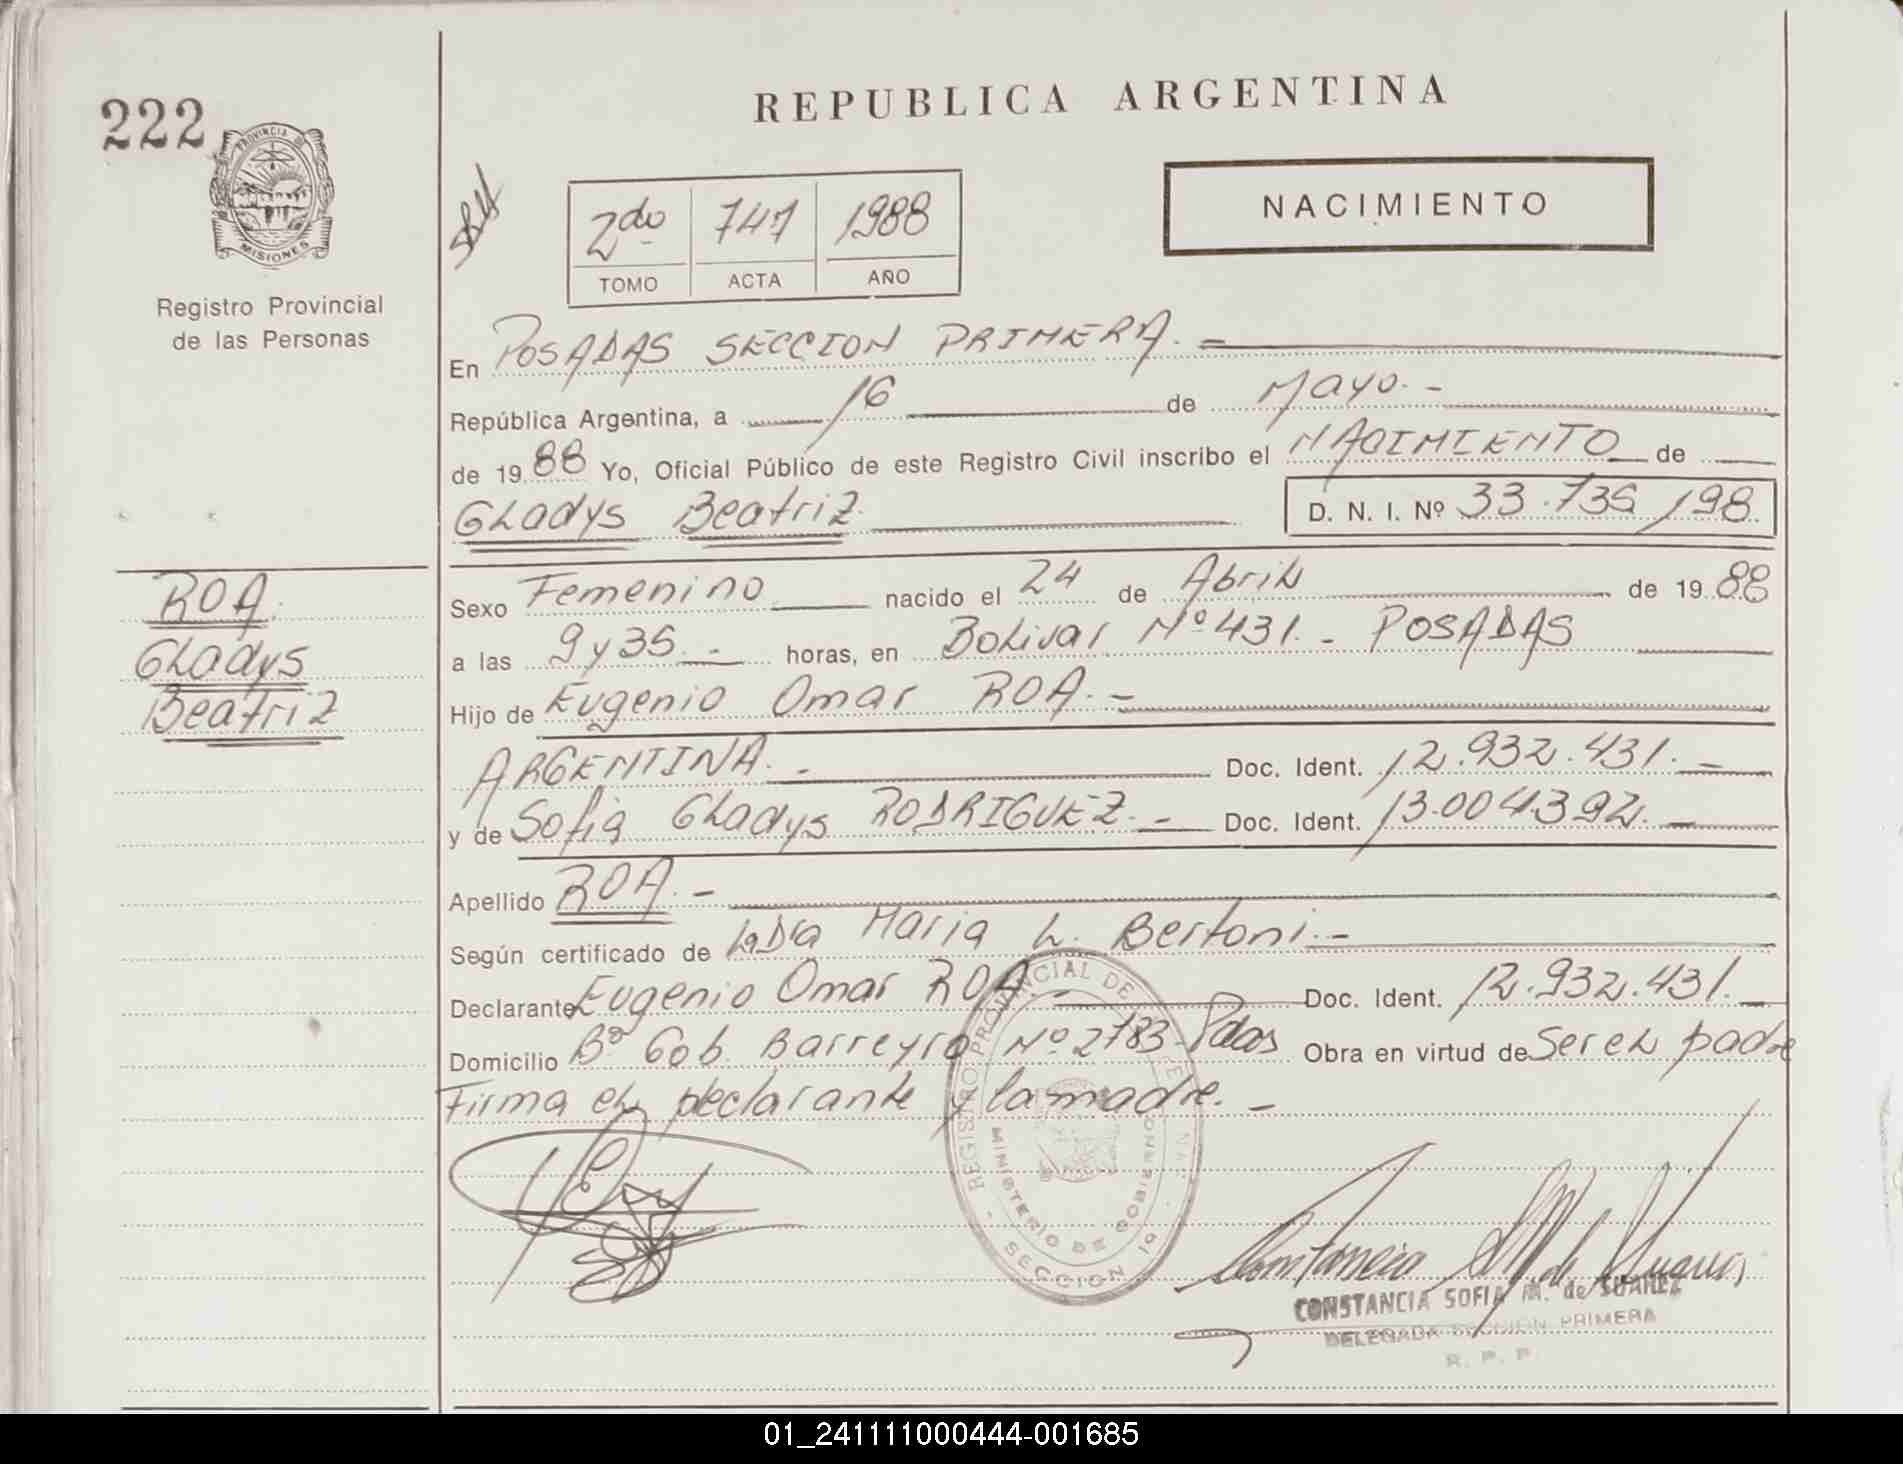 222
PROVINCIA DE
MISIONES
Registro Provincial
de las Personas
REPUBLICA ARGENTINA
2do 747 1988
TOMO ACTA AÑO
NACIMIENTO
En POSADAS SECCION PRIMERA. -
República Argentina, a 16 de Mayo. -
de 1988 Yo, Oficial Público de este Registro Civil inscribo el NACIMIENTO de
Gladys Beatriz
D. N. I. Nº 33.735/98.
ROA.
Gladys
Beatriz
Sexo Femenino nacido el 24 de Abril de 1988
a las 9 y 35. - horas, en Bolivar Nº 431. - POSADAS
Hijo de Eugenio Omar ROA. -
ARGENTINA. - Doc. Ident. 12.932.431. -
y de Sofia Gladys RODRIGUEZ. - Doc. Ident. 13.004.392. -
Apellido ROA. -
Según certificado de la Dra Maria L. Bertoni. -
Declarante Eugenio Omar ROA. - Doc. Ident. 12.932.431. -
Domicilio Bº Gob. Barreyro Nº 2783-Pdas Obra en virtud de Ser el padre
Firma el declarante y la madre. -
REGISTRO PROVINCIAL DE
MINISTERIO DE GOBIERNO
SECCION 1ª
CONSTANCIA SOFIA M. de SUAREZ
DELEGADA SECCION PRIMERA
R. P. P
01_241111000444-001685